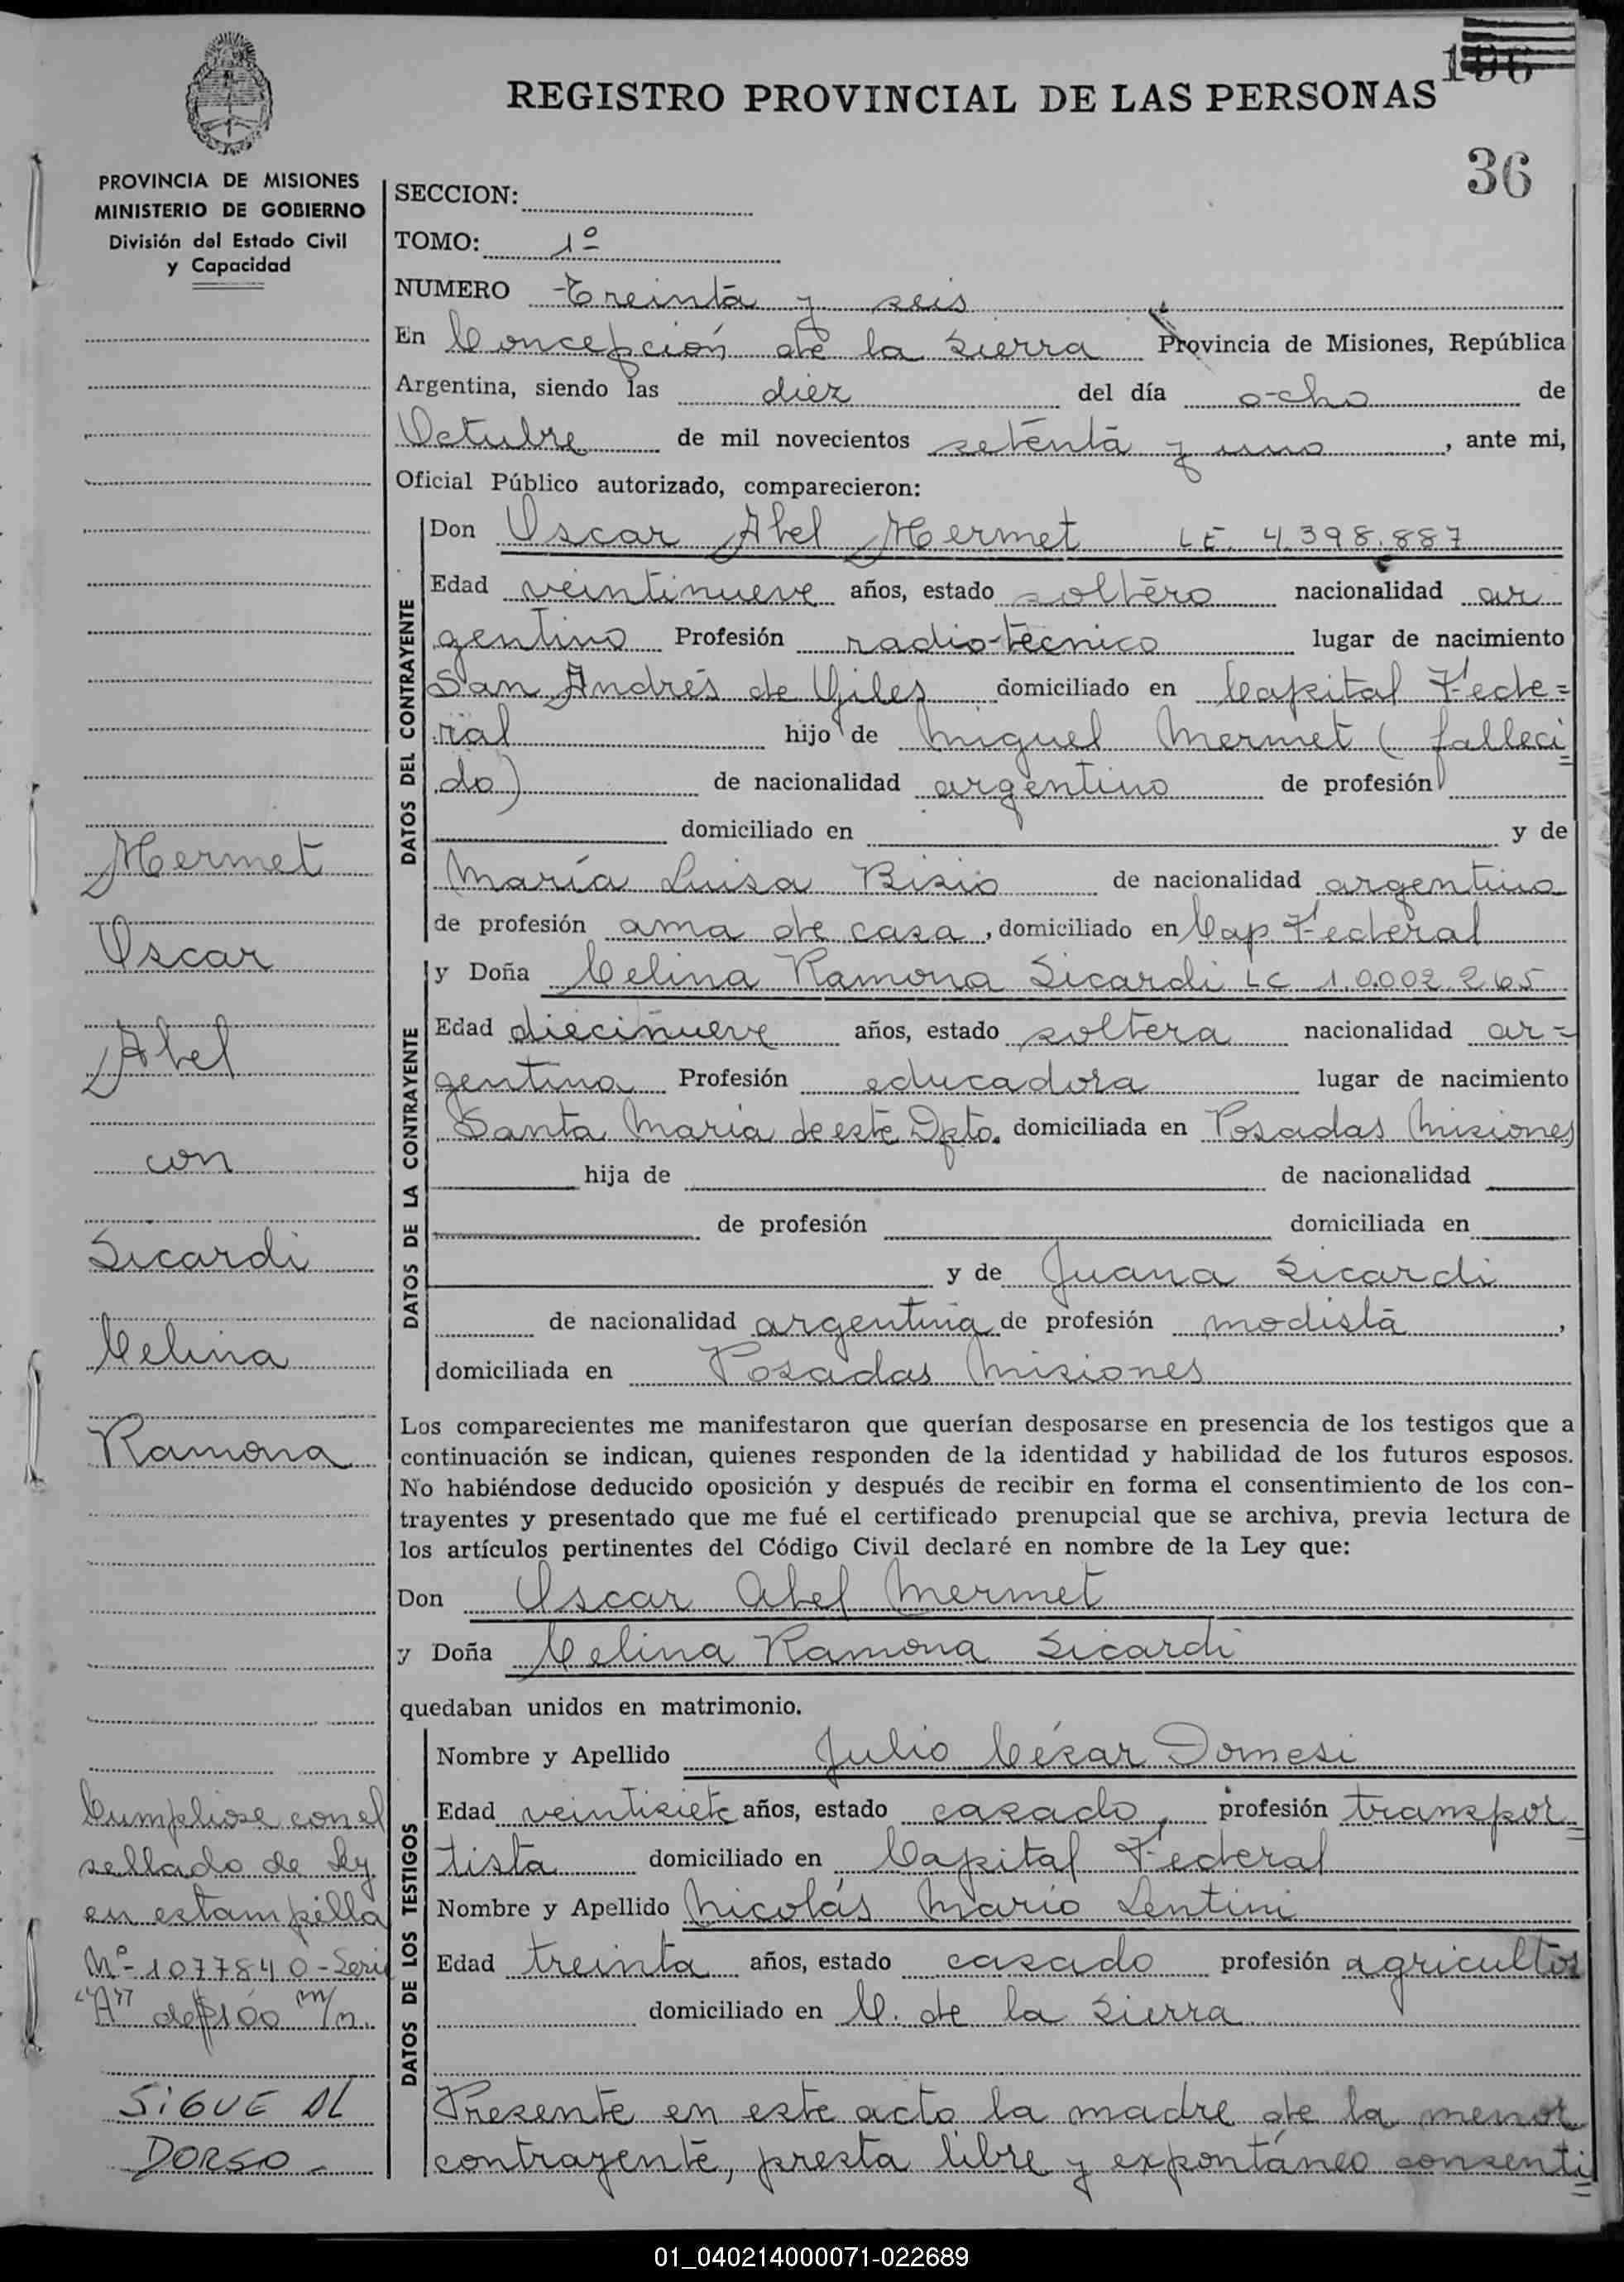 196
REGISTRO PROVINCIAL DE LAS PERSONAS
36
PROVINCIA DE MISIONES
MINISTERIO DE GOBIERNO
División del Estado Civil
y Capacidad
SECCION:
TOMO: 1º
NUMERO Treinta y seis
En Concepción de la Sierra Provincia de Misiones, República
Argentina, siendo las diez del día ocho de
Octubre de mil novecientos setenta y uno, ante mi,
Oficial Público autorizado, comparecieron:
DATOS DEL CONTRAYENTE
Don Oscar Abel Mermet LE. 4.398.887
Edad veintinueve años, estado soltero nacionalidad ar
gentino Profesión radio-técnico lugar de nacimiento
San Andrés de Giles domiciliado en Capital Fede=
ral hijo de Miguel Mermet (falleci=
do) de nacionalidad argentino de profesión
domiciliado en y de
María Luisa Bisio de nacionalidad argentina
de profesión ama de casa, domiciliado en Cap. Federal
DATOS DE LA CONTRAYENTE
y Doña Celina Ramona Sicardi LC 10.002.265
Edad diecinueve años, estado soltera nacionalidad ar=
gentina Profesión educadora lugar de nacimiento
Santa María de este Dpto. domiciliada en Posadas Misiones
hija de de nacionalidad
de profesión domiciliada en
y de Juana Sicardi
de nacionalidad argentina de profesión modista,
domiciliada en Posadas Misiones
Los comparecientes me manifestaron que querían desposarse en presencia de los testigos que a
continuación se indican, quienes responden de la identidad y habilidad de los futuros esposos.
No habiéndose deducido oposición y después de recibir en forma el consentimiento de los con-
trayentes y presentado que me fué el certificado prenupcial que se archiva, previa lectura de
los artículos pertinentes del Código Civil declaré en nombre de la Ley que:
Don Oscar Abel Mermet
y Doña Celina Ramona Sicardi
quedaban unidos en matrimonio.
DATOS DE LOS TESTIGOS
Nombre y Apellido Julio César Domesi
Edad veintisiete años, estado casado, profesión transpor=
tista domiciliado en Capital Federal
Nombre y Apellido Nicolás Mario Lentini
Edad treinta años, estado casado profesión agricultor
domiciliado en C. de la Sierra
Presente en este acto la madre de la menor
contrayente, presta libre y expontáneo consenti=
Mermet
Oscar
Abel
con
Sicardi
Celina
Ramona
Cumpliose con el
sellado de Ley
en estampilla
Nº 1077840-Serie
"A" de $100 m/n.
SIGUE AL
DORSO
01_040214000071-022689